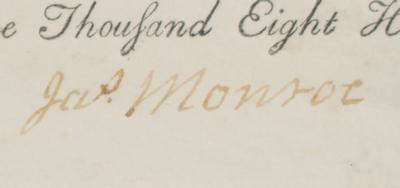 e Thouſand Eight H
Jaˢ. Monroe